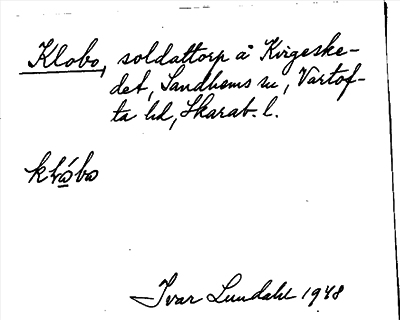 Klobo, soldattorp å Kvigeske-
det, Sandhems sn, Vartof-
ta hd, Skarab. l.
klób​o
Ivar Lundahl 1948